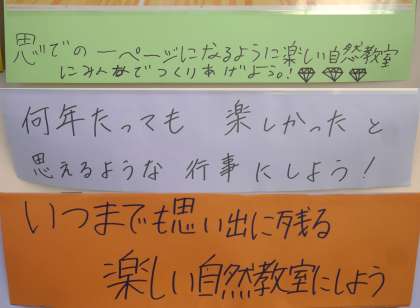 思いでの一ページになるように楽しい自然教室
にみんなでつくりあげよう。!
何年たっても 楽しかったと
思えるような 行事 にしよう!
いつまでも思い出に残る
楽しい自然教室にしよう